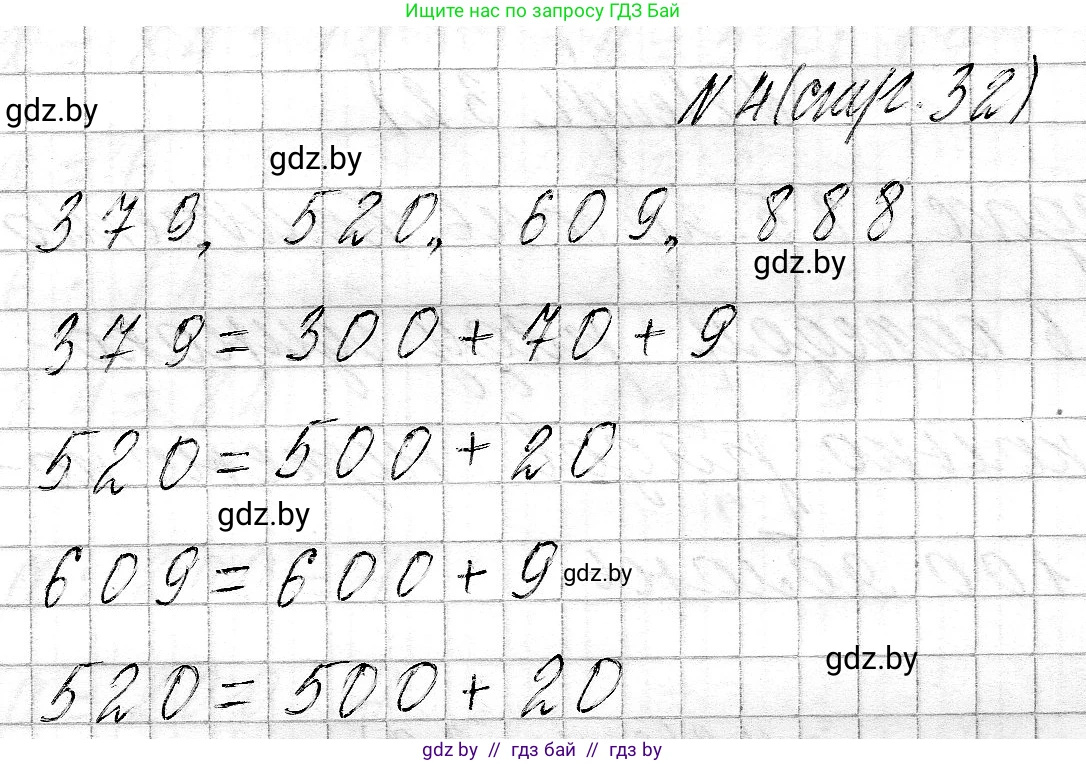 Ищите нас по запросу ГДЗ Бай
N 4 (стр. 32)
gdz.by
gdz.by
379, 520, 609, 888
gdz.by
379 = 300 + 70 + 9
520 = 500 + 20
gdz.by
609 = 600 + 9
gdz.by
520 = 500 + 20
gdz.by
gdz by // гдз бай // гдз by